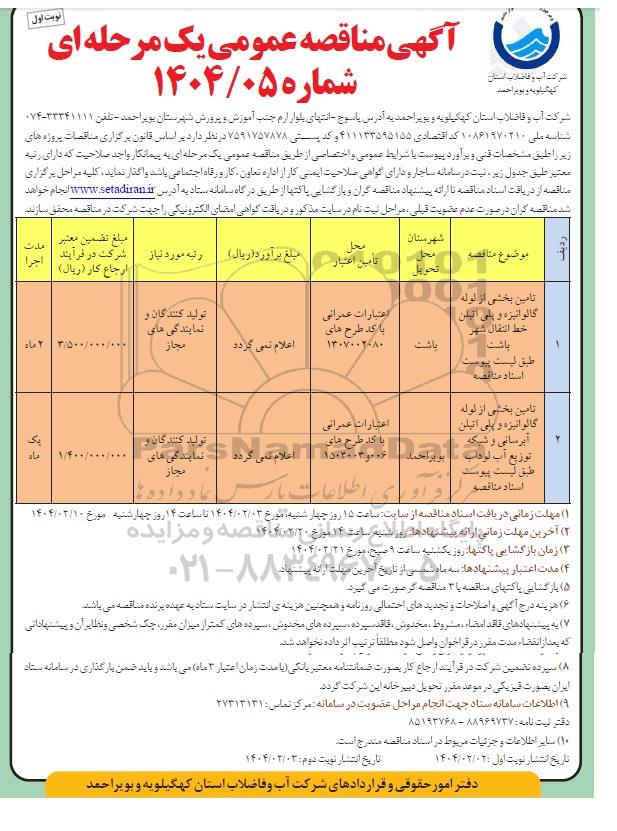 نوبت اول
آگهی مناقصه عمومی یک مرحله ای
شماره ۱۴۰۴/۰۵
شرکت آب و فاضلاب استان
کهگیلویه و بویراحمد
شرکت آب و فاضلاب استان کهگیلویه و بویراحمد به آدرس یاسوج -انتهای بلوار ارم جنب آموزش و پرورش شهرستان بویراحمد - تلفن ۳۳۳۴۱۱۱۱-۰۷۴
شناسه ملی ۱۰۸۶۱۹۷۰۲۱۰ کد اقتصادی ۴۱۱۱۳۳۵۹۵۱۵۵ و کد پستی ۷۵۹۱۷۵۷۸۷۸ در نظر دارد بر اساس قانون برگزاری مناقصات پروژه های
زیر را طبق مشخصات فنی و برآورد پیوست با شرایط عمومی و اختصاصی از طریق مناقصه عمومی یک مرحله ای به پیمانکار واجد صلاحیت که دارای رتبه
معتبر طبق جدول زیر، ثبت در سامانه ساجار و دارای گواهی صلاحیت ایمنی کار از اداره تعاون ،کار و رفاه اجتماعی باشد واگذار نماید، کلیه مراحل برگزاری
مناقصه از دریافت اسناد مناقصه تا ارائه پیشنهاد مناقصه گران و بازگشایی پاکتها از طریق درگاه سامانه ستاد به آدرس www.setadiran.ir انجام خواهد
شد مناقصه گران در صورت عدم عضویت قبلی ، مراحل ثبت نام در سایت مذکور و دریافت گواهی امضای الکترونیکی را جهت شرکت در مناقصه محقق سازند.
ردیف
موضوع مناقصه
شهرستان محل تحویل
محل تأمین اعتبار
مبلغ برآورد(ریال)
رتبه مورد نیاز
مبلغ تضمین معتبر شرکت در فرآیند ارجاع کار (ریال)
مدت اجرا
۱
تامین بخشی از لوله گالوانیزه و پلی اتیلن خط انتقال شهر باشت طبق لیست پیوست اسناد مناقصه
باشت
اعتبارات عمرانی با کد طرح های ۱۳۰۷۰۰۲۰۸۰
اعلام نمی گردد
تولید کنندگان و نمایندگی های مجاز
۳/۵۰۰/۰۰۰/۰۰۰
۲ ماه
۲
تامین بخشی از لوله گالوانیزه و پلی اتیلن آبرسانی و شبکه توزیع آب لوداب طبق لیست پیوست اسناد مناقصه
بویراحمد
اعتبارات عمرانی با کد طرح های ۰۰۶و۱۵۰۳۰۰۳
اعلام نمی گردد
تولید کنندگان و نمایندگی های مجاز
۱/۴۰۰/۰۰۰/۰۰۰
یک ماه
ParsNamadData
مرکز فرآوری اطلاعات پارس نماد داده ها
۱) مهلت زمانی دریافت اسناد مناقصه از سایت: ساعت ۱۵ روز چهارشنبه، مورخ ۱۴۰۴/۰۲/۰۳ تا ساعت ۱۴ روز چهارشنبه مورخ ۱۴۰۴/۰۲/۱۰
۲) آخرین مهلت زمانی ارائه پیشنهادها: روز شنبه ساعت ۱۴ مورخ ۱۴۰۴/۰۲/۲۰
۳) زمان بازگشایی پاکتها: روز یکشنبه ساعت ۹ صبح، مورخ ۱۴۰۴/۰۲/۲۱
پایگاه اطلاع رسانی مناقصه و مزایده
۰۲۱-۸۸۳۴۹۶۷۰-۵
۴) مدت اعتبار پیشنهادها: سه ماه شمسی از تاریخ آخرین مهلت ارائه پیشنهاد.
۵) بازگشایی پاکتهای مناقصه با ۳ مناقصه گر صورت می گیرد.
۶) هزینه درج آگهی و اصلاحات و تجدید های احتمالی روزنامه و همچنین هزینه ی انتشار در سایت ستاد به عهده برنده مناقصه می باشد.
۷) به پیشنهادهای فاقد امضاء ، مشروط ، مخدوش ، فاقد سپرده ، سپرده های مخدوش ، سپرده های کمتر از میزان مقرر، چک شخصی و نظایر آن و پیشنهاداتی
که بعد از انقضاء مدت مقرر در فراخوان واصل شود مطلقاً ترتیب اثر داده نخواهد شد.
۸) سپرده تضمین شرکت در فرآیند ارجاع کار بصورت ضمانتنامه معتبر بانکی(با مدت زمان اعتبار ۳ ماه) می باشد و باید ضمن بارگذاری در سامانه ستاد
ایران بصورت فیزیکی در موعد مقرر تحویل دبیرخانه این شرکت گردد.
۹) اطلاعات سامانه ستاد جهت انجام مراحل عضویت در سامانه : مرکز تماس : ۲۷۳۱۳۱۳۱
دفتر ثبت نامه : ۸۸۹۶۹۷۳۷ - ۸۵۱۹۳۷۶۸
۱۰) سایر اطلاعات و جزئیات مربوط در اسناد مناقصه مندرج است.
تاریخ انتشار نوبت اول : ۱۴۰۴/۰۲/۰۲ تاریخ انتشار نوبت دوم : ۱۴۰۴/۰۲/۰۳
دفتر امور حقوقی و قراردادهای شرکت آب و فاضلاب استان کهگیلویه و بویراحمد